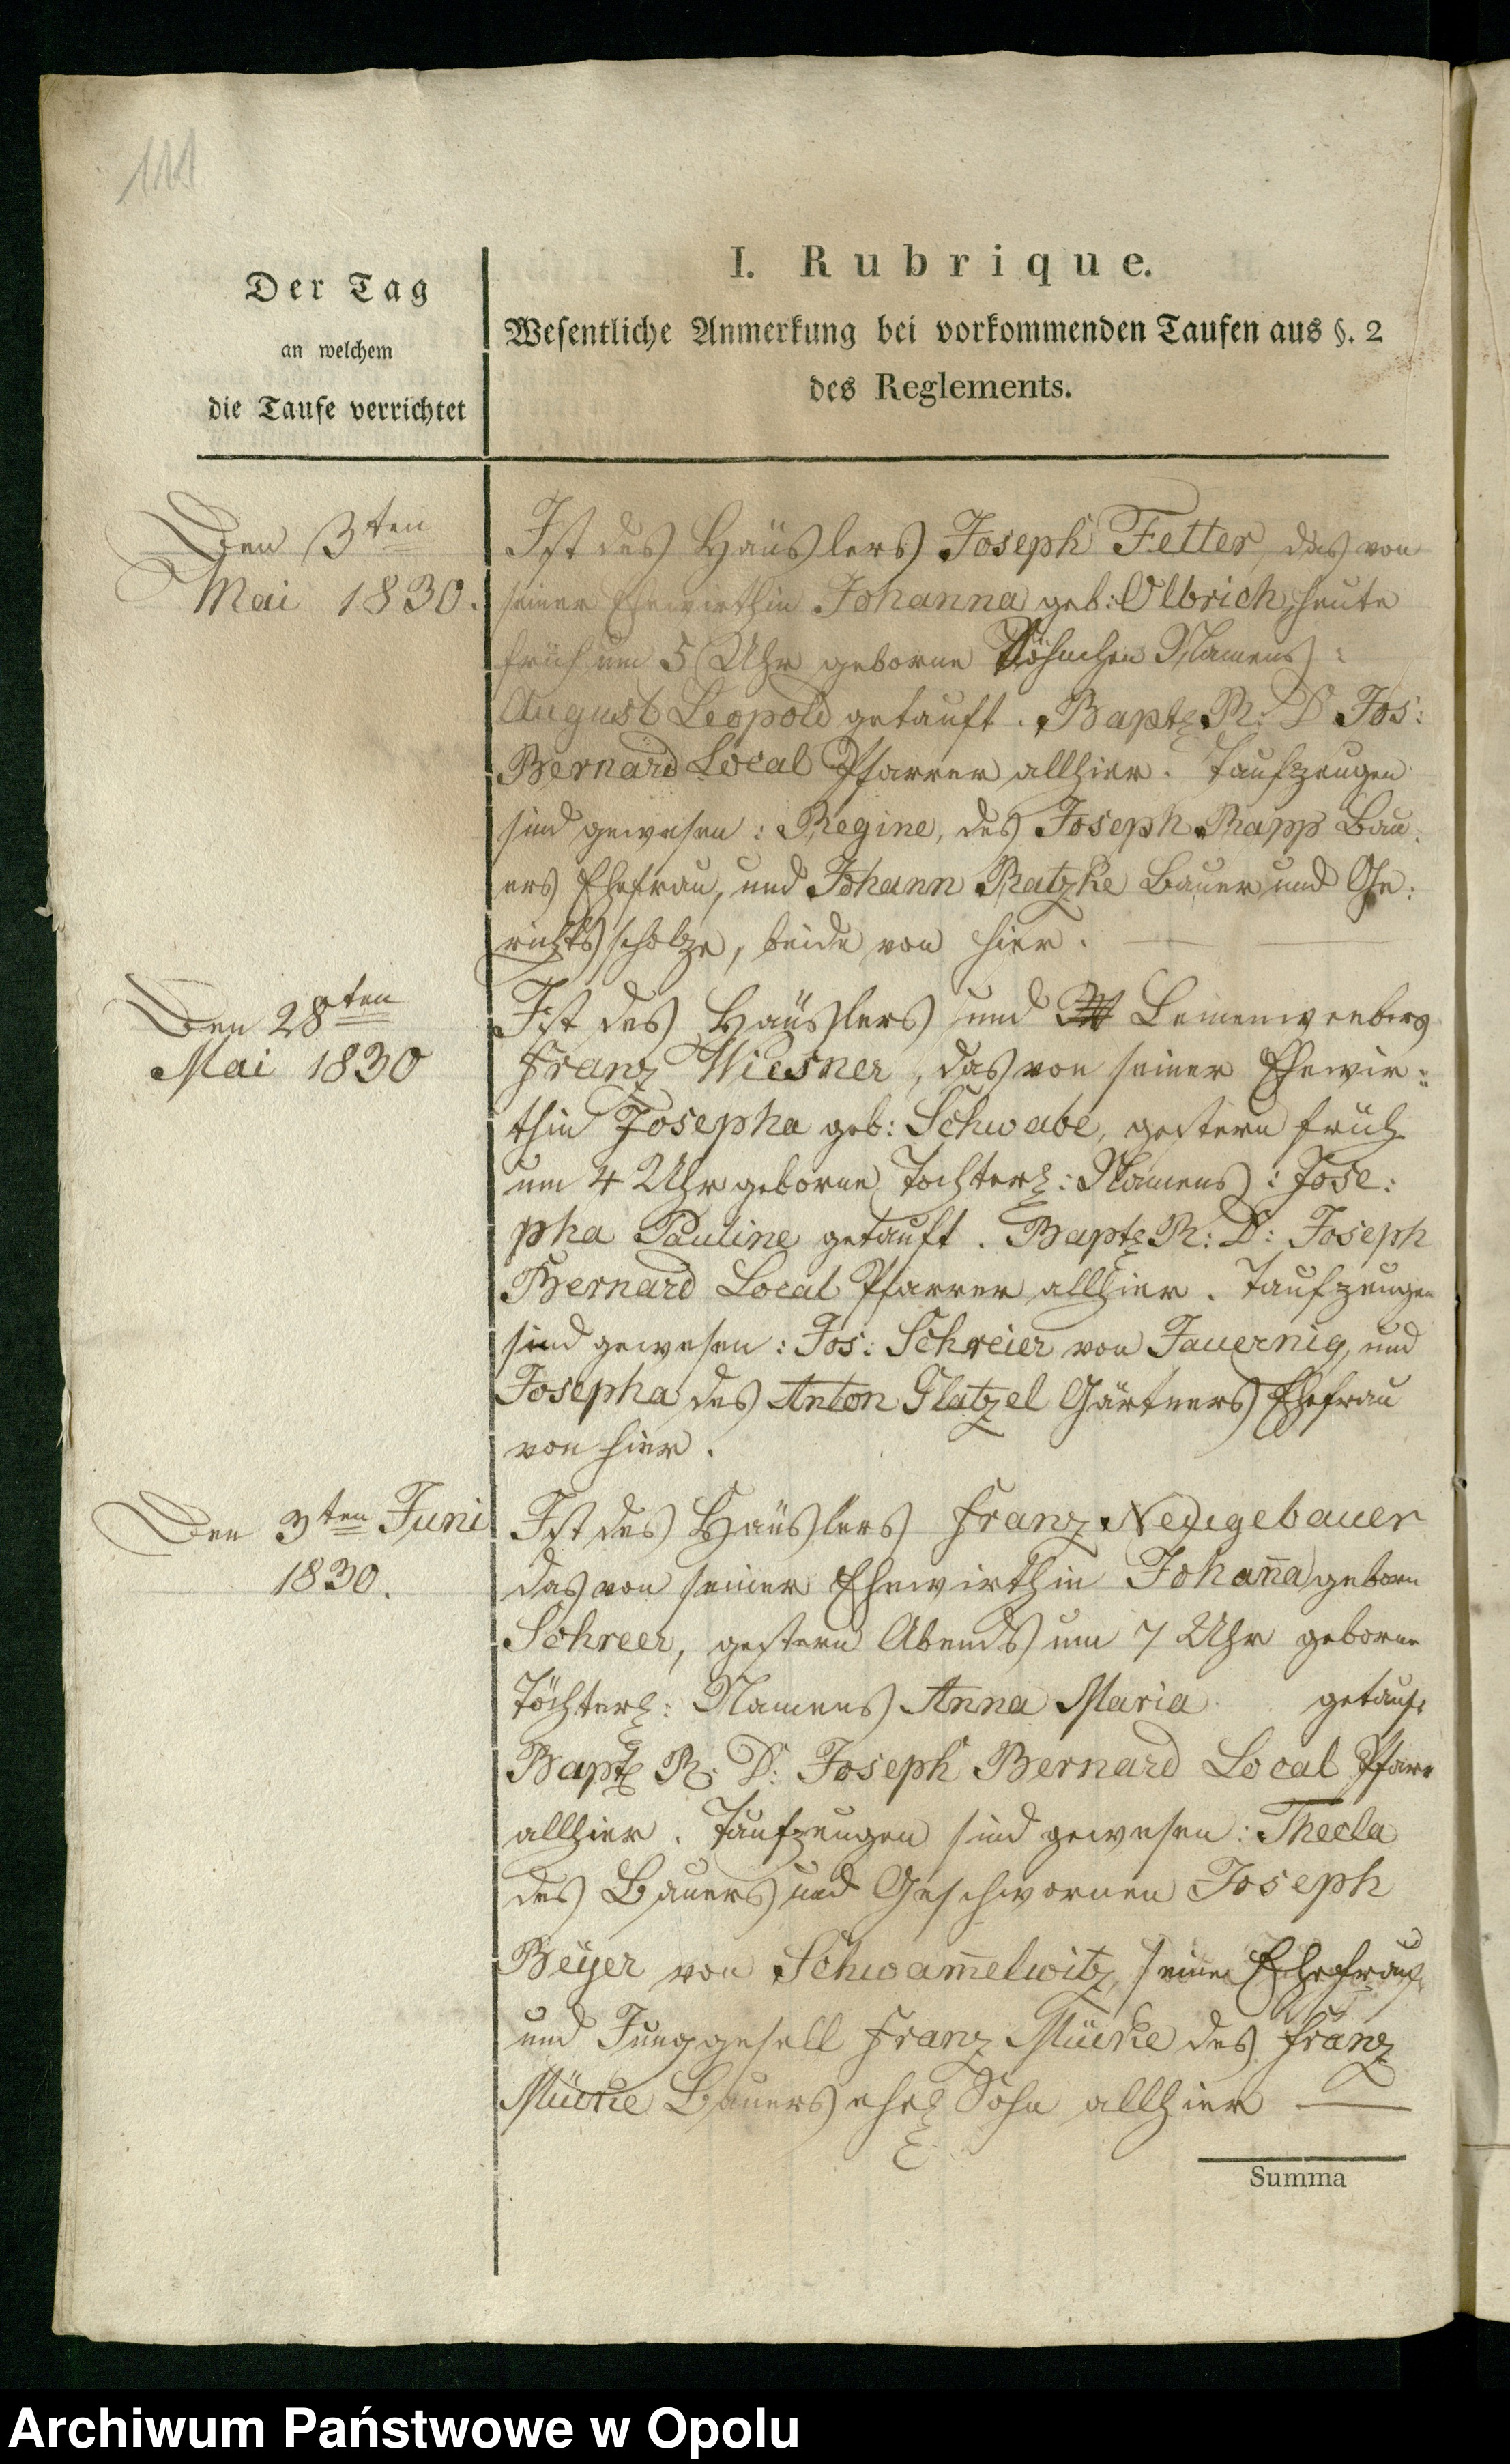 111
Der Tag
an welchem
die Taufe verrichtet
I. Rubrique.
Wesentliche Anmerkung bei vorkommenden Taufen aus §. 2
des Reglements.
Den 3ten
Mai 1830.
Ist des Häuslers Joseph Fetter, das von
seiner Ehewirthin Johanna geb: Olbrich, heute
früh um 5 Uhr geborne Söhnchen Namens:
August Leopold getauft. Bapt: R: D Jos:
Bernard Local Pfarrer allhier. Taufzeugen
sind gewesen: Regine, des Joseph Rapp Bau:
ers Ehefrau, und Johann Ratzke Bauer und Ge:
richtsscholze, beide von hier.
Den 28ten
Mai 1830
Ist des Häuslers und Leinenwebers
Franz Wiesner, das von seiner Ehewir:
thin Josepha geb: Schwabe, gestern früh
um 4 Uhr geborne Tochterl: Namens: Jose:
pha Pauline getauft. Bapt: R: D: Joseph
Bernard Local Pfarrer allhier. Taufzeugen
sind gewesen: Jos: Schreier von Jauernig, und
Josepha des Anton Glatzel Gärtners Ehefrau
von hier.
Den 3ten Juni
1830.
Ist des Häuslers Franz Neugebauer
das von seiner Ehewirthin Johan̄a geborn
Schreer, gestern Abends um 7 Uhr geborne
Töchterl: Namens Anna Maria getauft
Bapt: R: D: Joseph Bernard Local Pfarr
allhier. Taufzeugen sind gewesen: Thecla
des Bauers und Geschwornen Joseph
Beyer von Schwam̄elwitz, seine Ehefrau,
und Junggesell Franz Mücke des Franz
Mücke Bauers ehel Sohn allhier
Summa
Archiwum Państwowe w Opolu